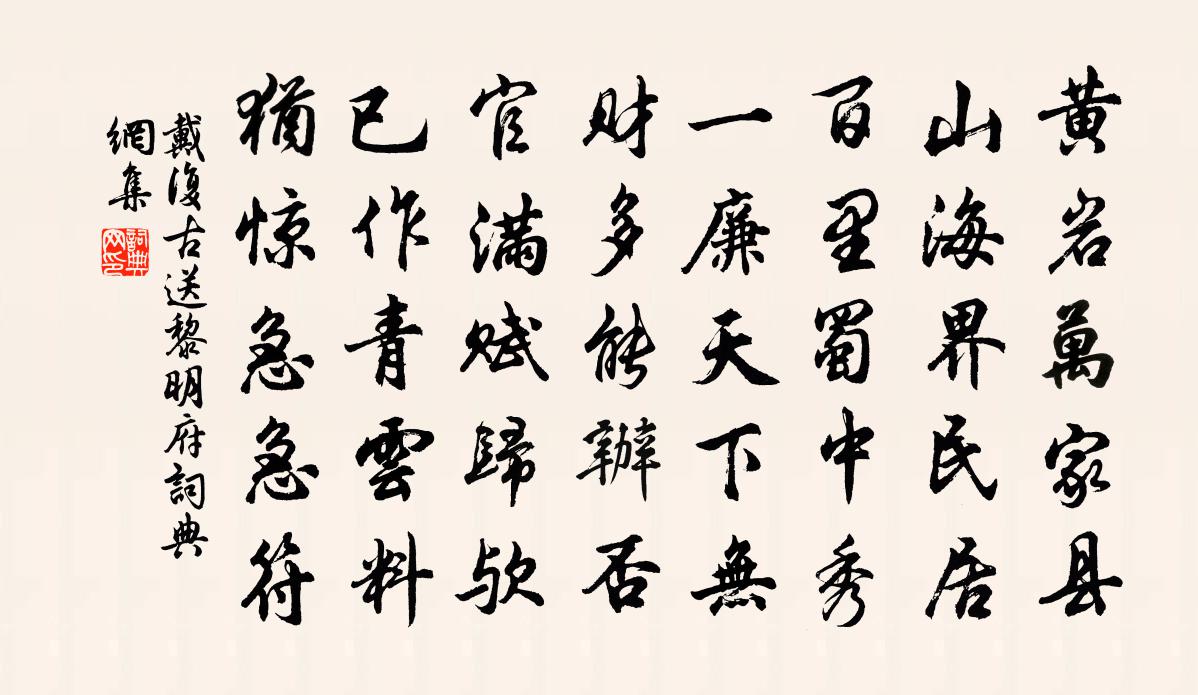 黄岩萬家县
山海界民居
百里蜀中秀
一廉天下無
财多能辦否
官滿赋歸欤
已作青雲料
猶惊急急符
戴復古送黎明府詞典
網集
詞典網印